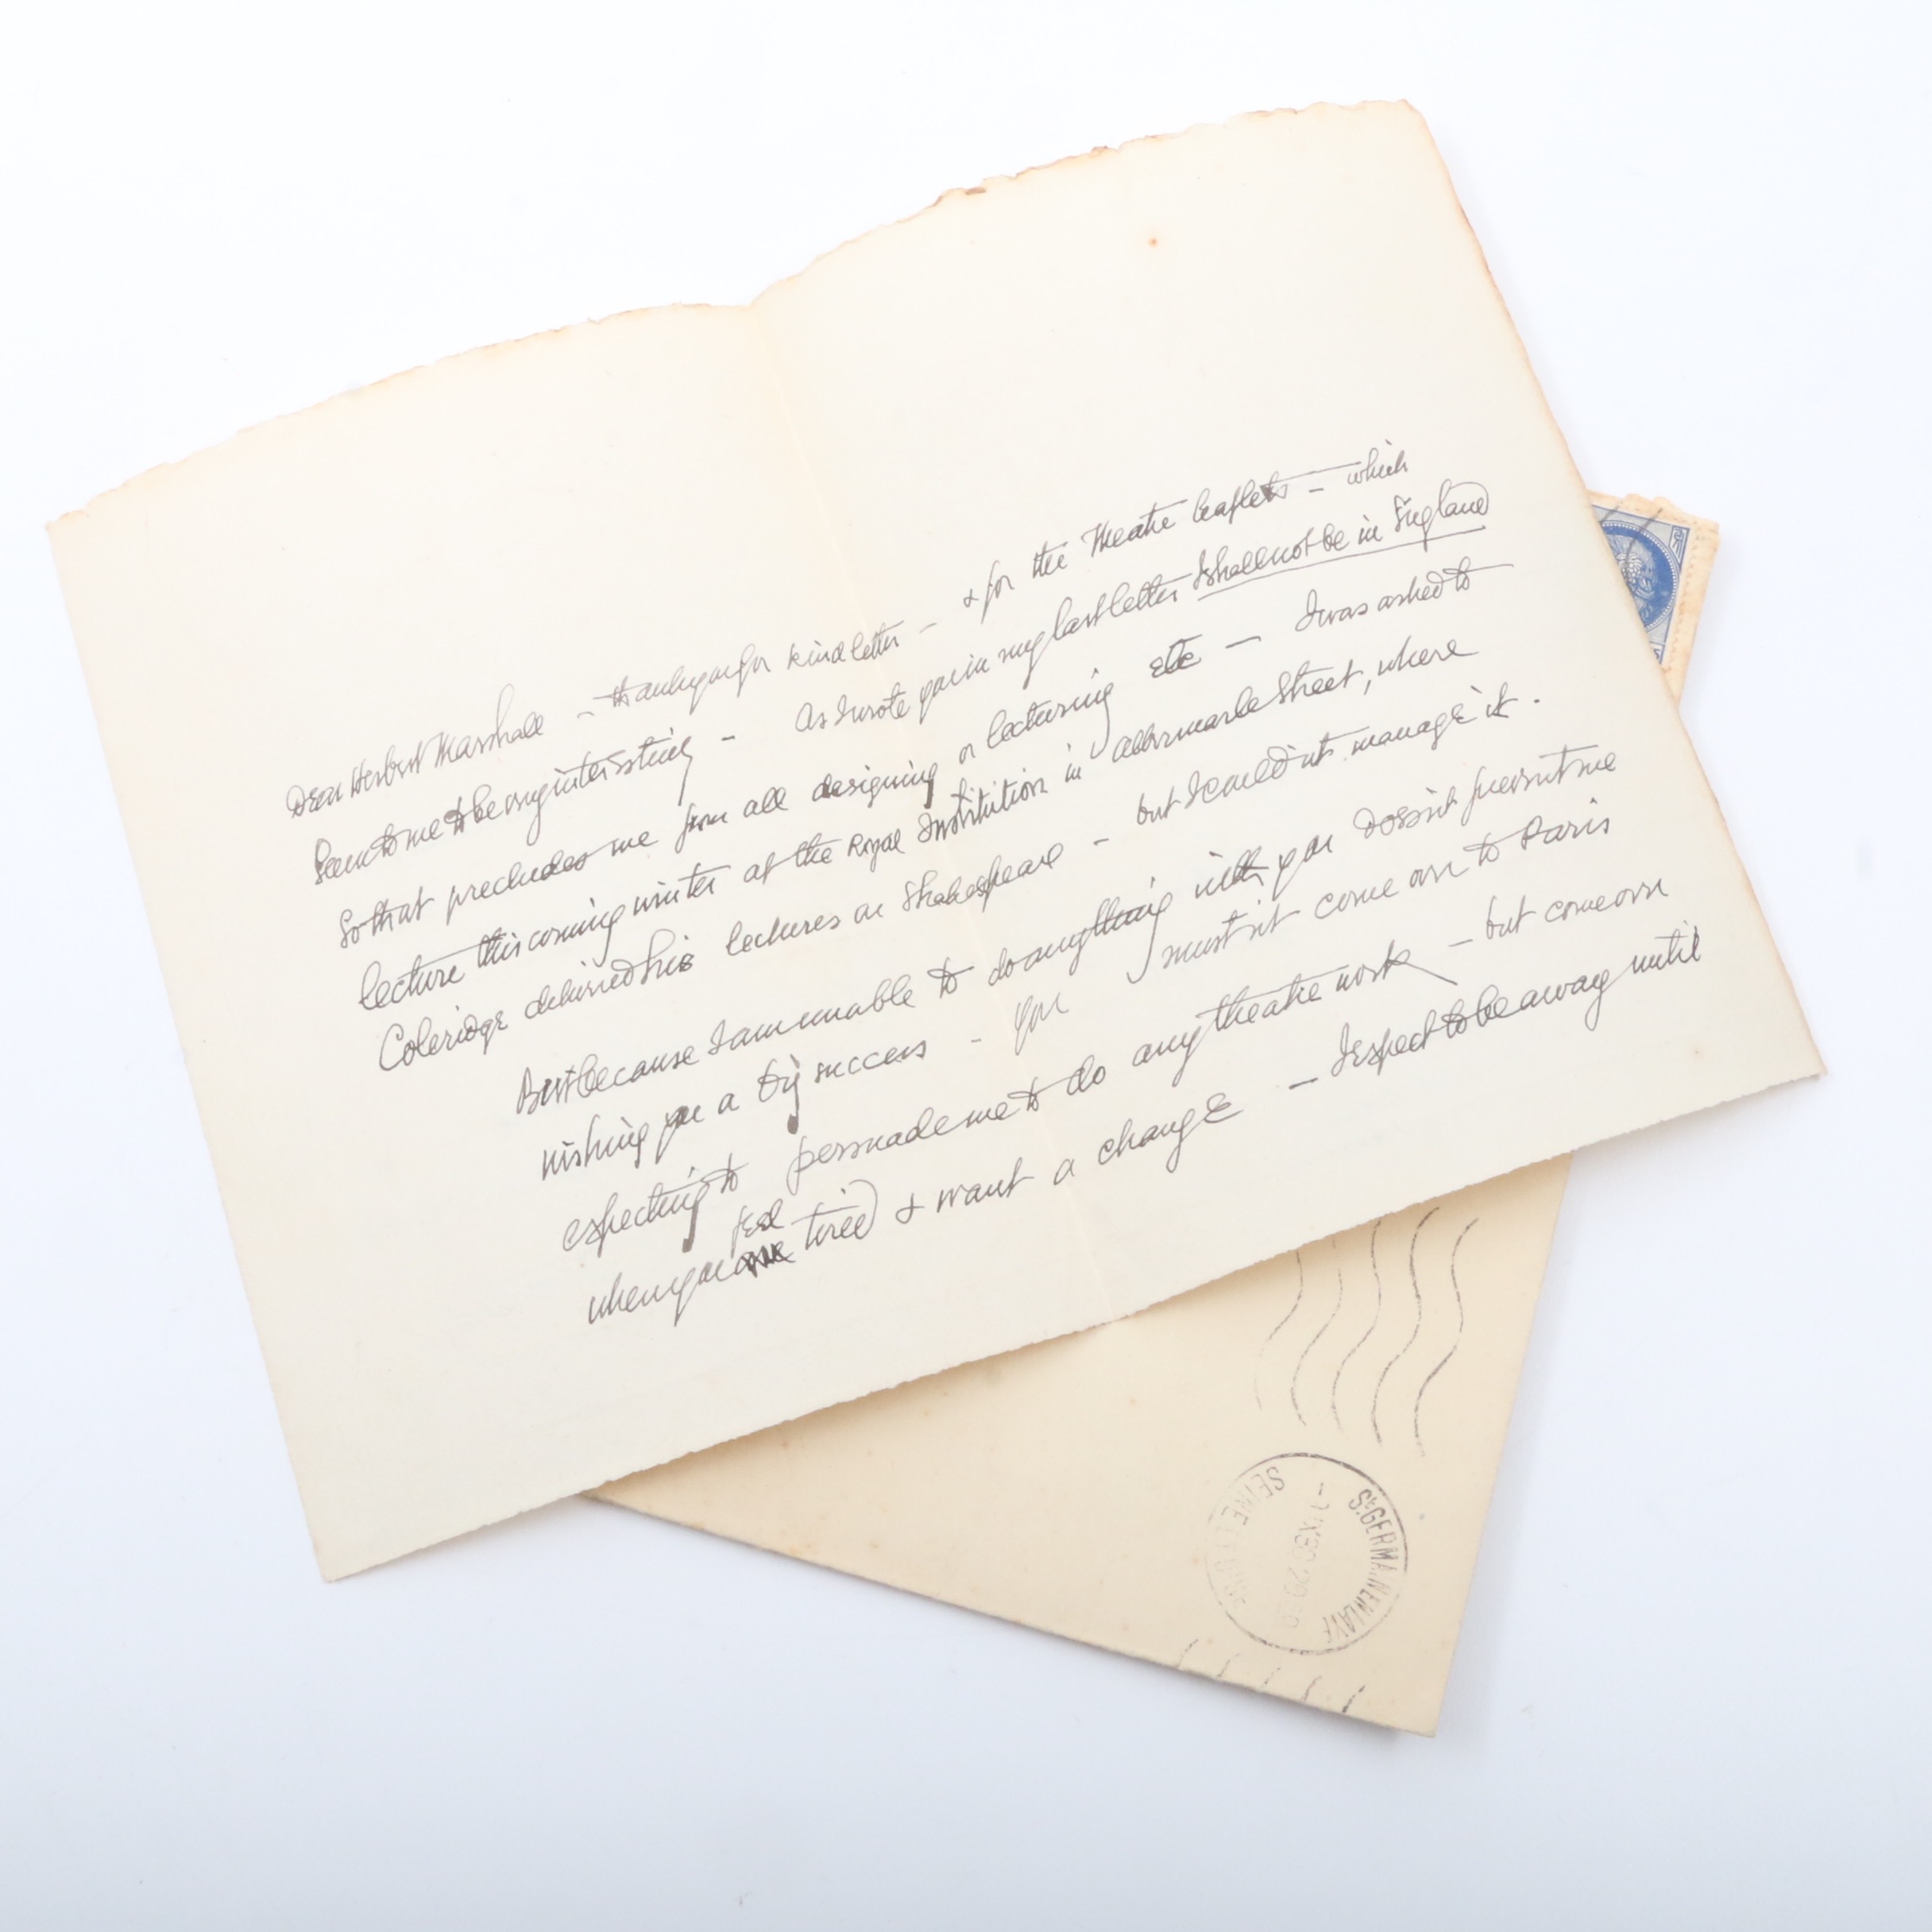 Dear Herbert Marshall – thank you for kind letter – & for the Theatre leaflets – which
seem to me to be very interesting – As I wrote you in my last letter I shall not be in England
So that precludes me from all designing or lecturing etc – I was asked to
lecture this coming winter at the Royal Institution in Albermarle Street, where
Coleridge delivered his lectures on Shakespeare – but I couldn't manage it.
But because I am unable to do anything with you doesn't prevent me
wishing you a big success – You mustn't come over to Paris
expecting to persuade me to do any theatre work – but come over
when you feel tired & want a change – I expect to be away until
St GERMAIN EN LAYE
SEINE ET OISE